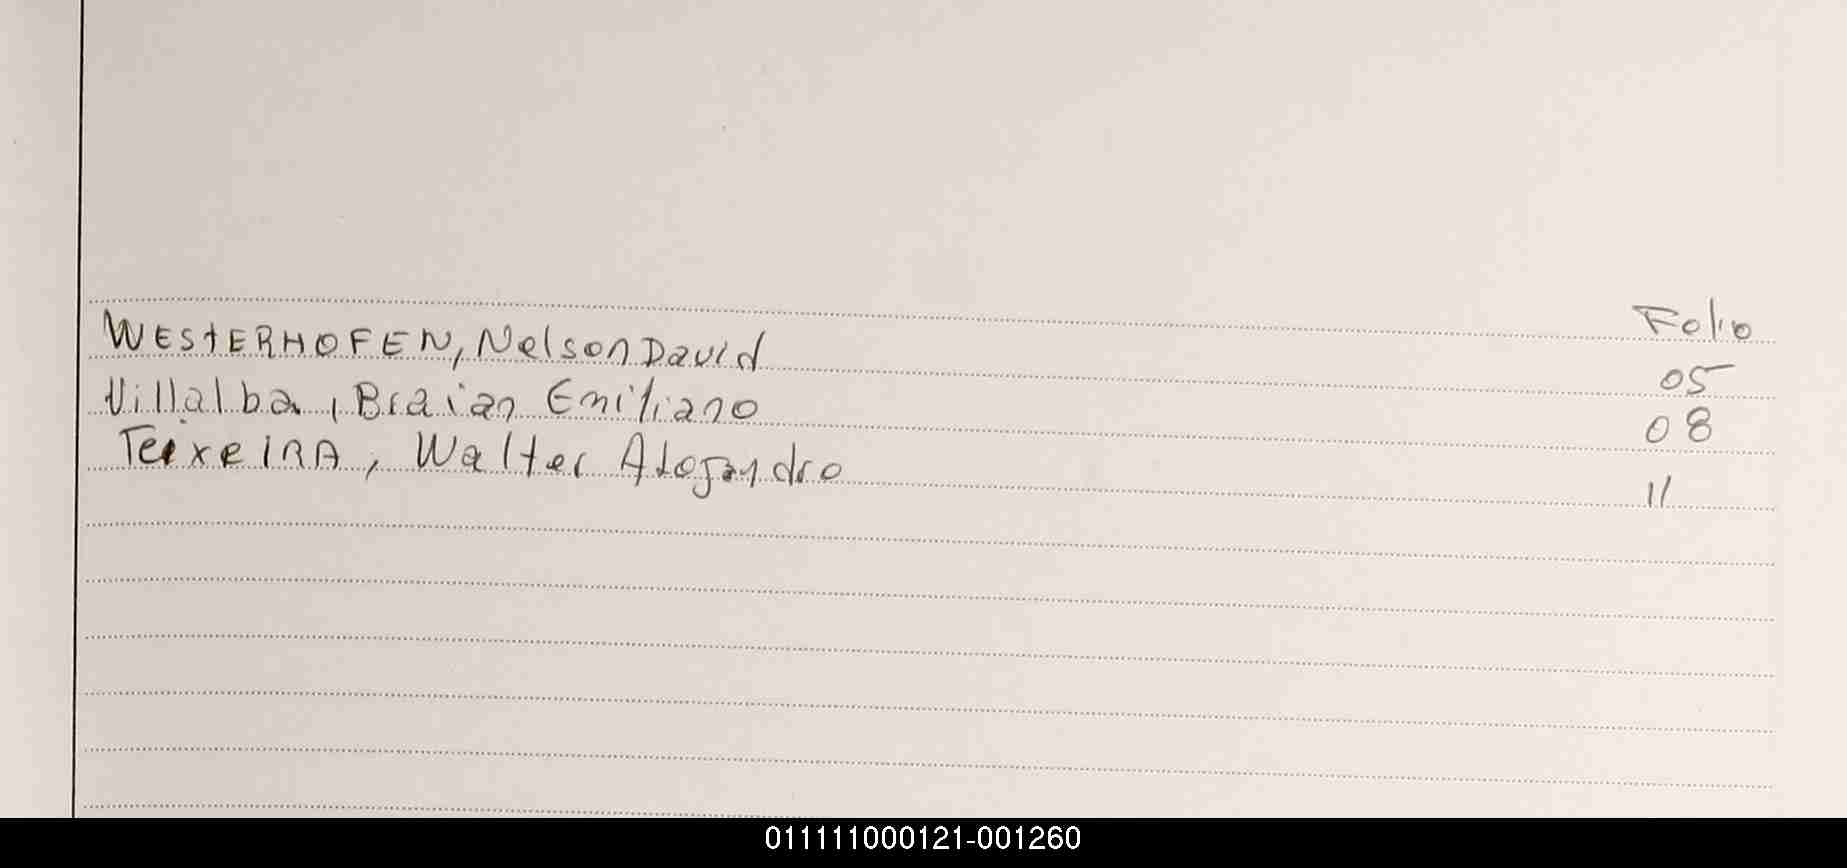 Folio
WESTERHOFEN, Nelson David 05
Villalba, Braian Emiliano 08
TeixeIRA, Walter Alejandro 11
011111000121-001260